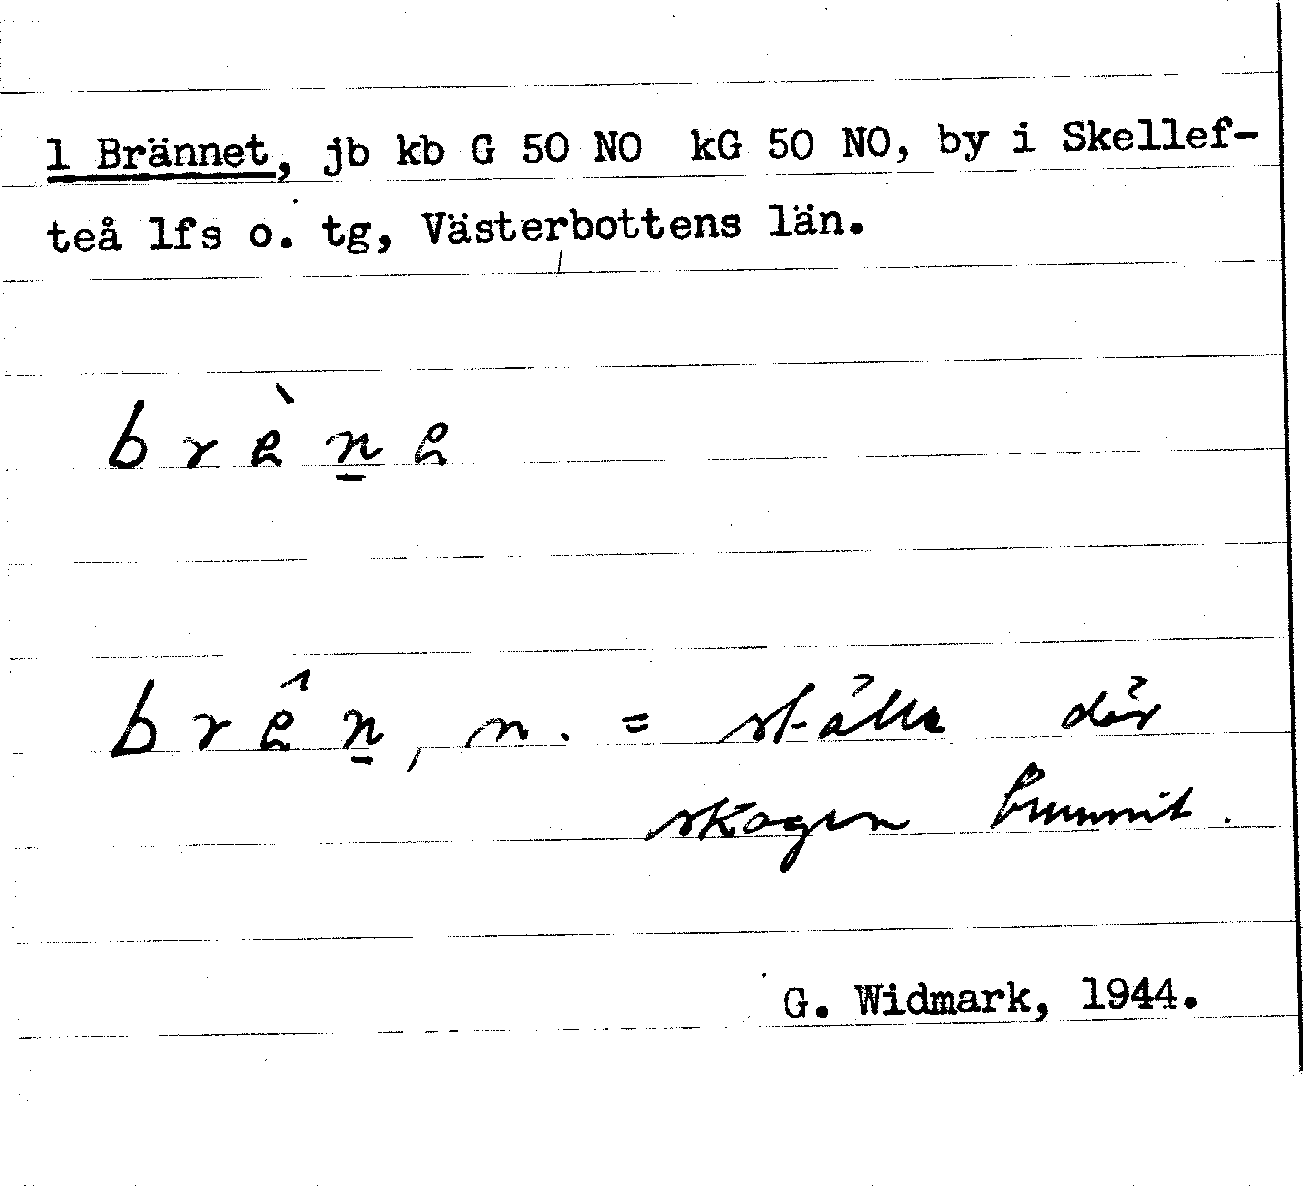 1 Brännet, jb kb G 50 NO kG 50 NO, by i Skellef-
teå lfs o. tg, Västerbottens län.
brèn̲e
brên̲, n. = ställe där
skogen brunnit.
G. Widmark, 1944.